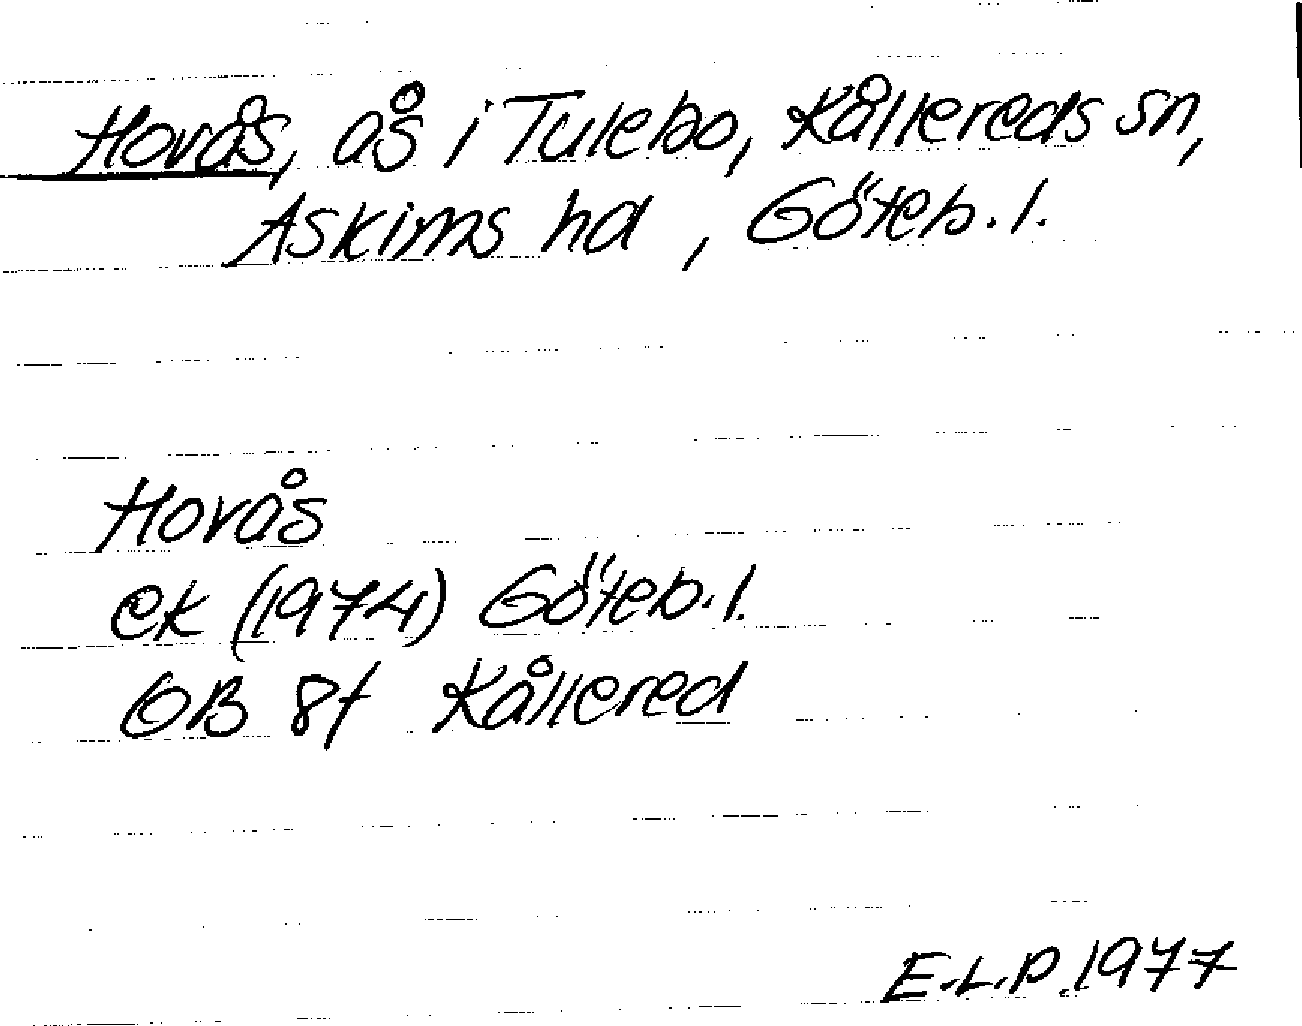 Hovås, ås i Tulebo, Kållereds sn,
Askims hd, Göteb. l.
Hovås
ek (1974) Göteb. l.
ÖB 8f Kållered
E.L.P. 1977